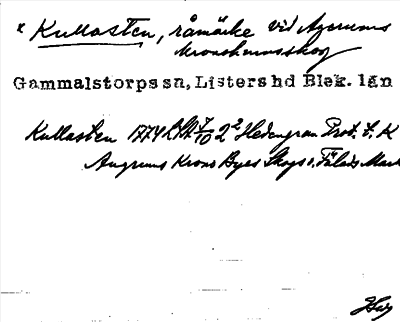 * Kullasten, råmärke vid Agerums
Kronohemsskog
Gammalstorps sn, Listers hd Blek. län
Kullasten 1774 7/10 2² Hedengran Prot. f. K
Angrums Krono Byes Skogs o. Fälads Mark